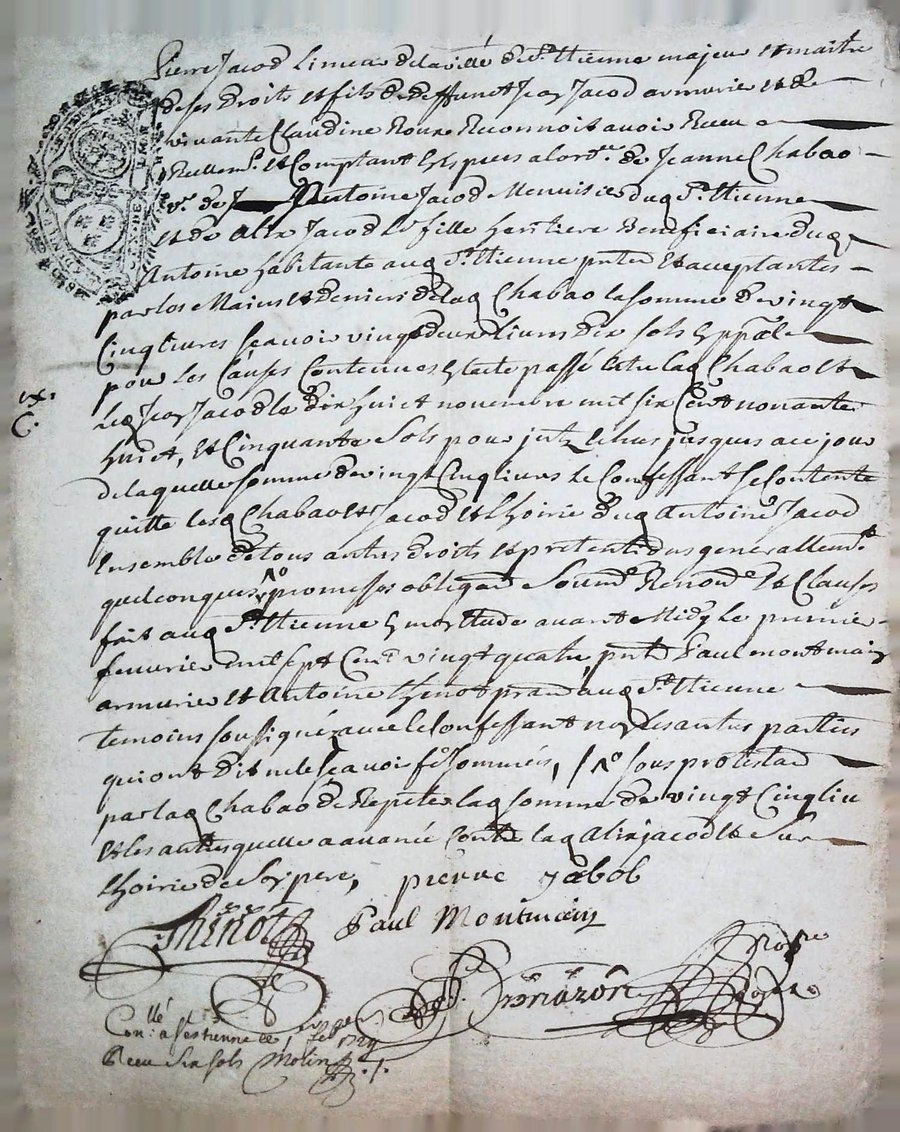 Pierre Jacod Limeur de la ville de St Etienne majeur et maitre
de ses droits et fils de deffunct Jean Jacod armurier et de
vivante Claudine Roux Reconnoit avoir Receu
Reellemt. et Comptant Especes a lordre. de Jeanne Chabao
Ve. de Antoine Jacod Menuisier dud St Etienne
et de Alix Jacod Le fille heritiere Beneficiaire dud
Antoine habitante aud St Etienne pntes et acceptantes
par les Mains et deniers de lad Chabao la somme de vingt
Cinq livres scavoir vingt deux livres dix sols
pour les Causes Contenues acte passé entre lad Chabao et
Led Jean Jacod le dix huict novembre mil six Cent nonante
huict, et Cinquante sols pour Echus jusques a ce jour
de laquelle somme de vingt Cinq livres Le Confessant se Contente
quitte lesd Chabao et Jacod et Lhoirie dud Antoine Jacod
Ensemble de tous autres droits et pretentions generallemt.
quelconques promesses obligaōn Renonōn et Clauses
fait aud St Etienne Estude avant Midy Le premier
fevvrier mil sept Cent vingt quatre pnt Paul montmain
armurier et Antoine Thenot aud St Etienne
temoins soussignéz avec le Confessant non les autres parties
qui ont dit ne scavoir sommées, sous protestaōn
par lad Chabao de Repeter lad somme de vingt Cinq liv
et les autres quelle a avancé Contre lad Alix Jacod et Sur
Lhoirie de Son pere, pierre Jabob
Thenot Paul Montmain
Con: a St Etienne le 1724
Receu six sols Molin